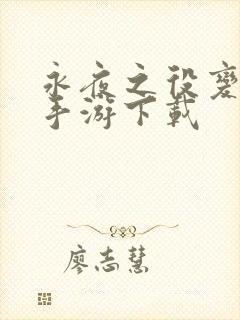 永夜之役
手游下載
廖志慧